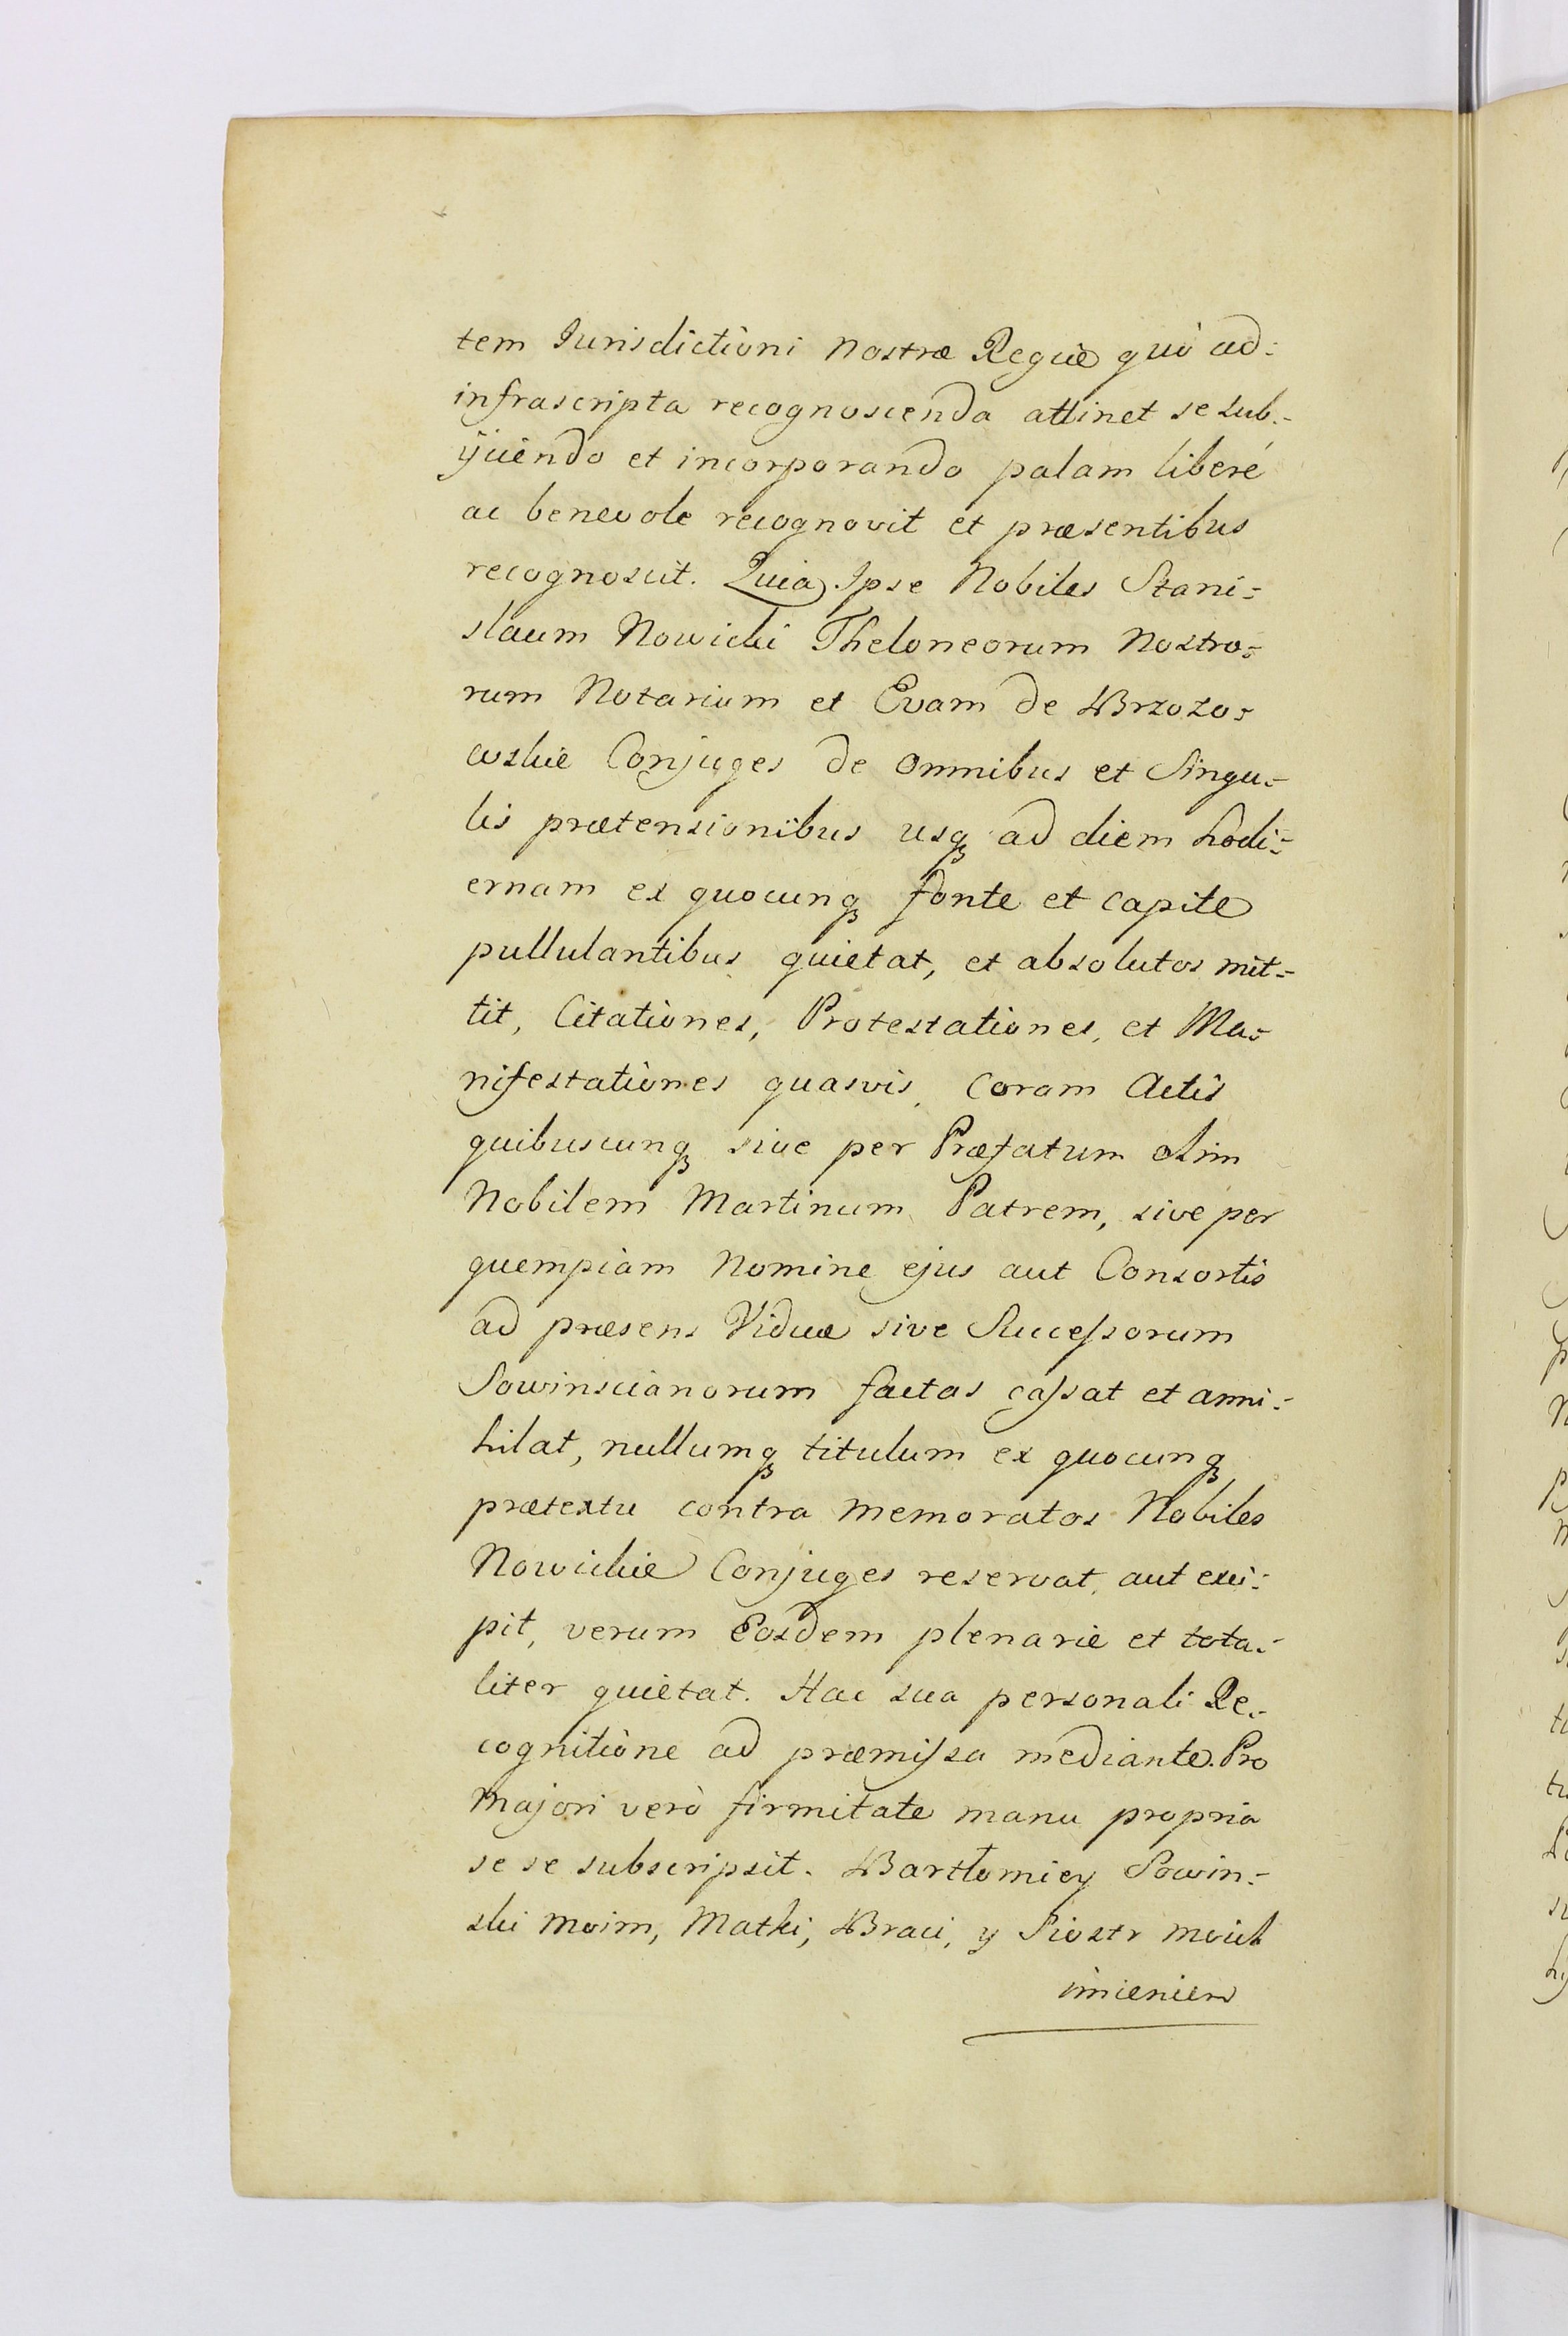 tem Jurisdictioni nostræ Regiæ quò ad:
infrascripta recognoscenda attinet se sub:
ijciendo et incorporando palam liberé
ac benevole recognovit et præsentibus
recognoscit. Quia Ipse Nobiles Stani:
slaum Nowicki Theloneorum Nostro:
rum Notarium et Evam de Brzozo:
wskie Conjuges de omnibus et Singu:
lis prætensionibus usq ad diem hodi:
ernam ex quocunq fonte et capite
pullulantibus quietat, et absolutos mit:
tit, Citationes, Protestationes, et Ma:
nifestationes quasvis, coram Actis
quibuscunq sive per Præfatum olim
Nobilem Martinum Patrem, sive per
quempiam Nomine ejus aut Consortis
ad præsens Viduæ sive Successorum
Sowinscianorum factas cassat et anni:
hilat, nullumq titulum ex quocunq
prætextu contra memoratos Nobiles
Nowickie Conjuges reservat, aut exci:
pit, verum Eosdem plenarie et tota:
liter quietat. Hac sua personali Re:
cognitione ad præmissa mediante. Pro
majori verò firmitate manu propria
se se subscripsit. Bartłomiey Sowin:
ski moim, Matki, Braci, y Siostr moich
imieniem